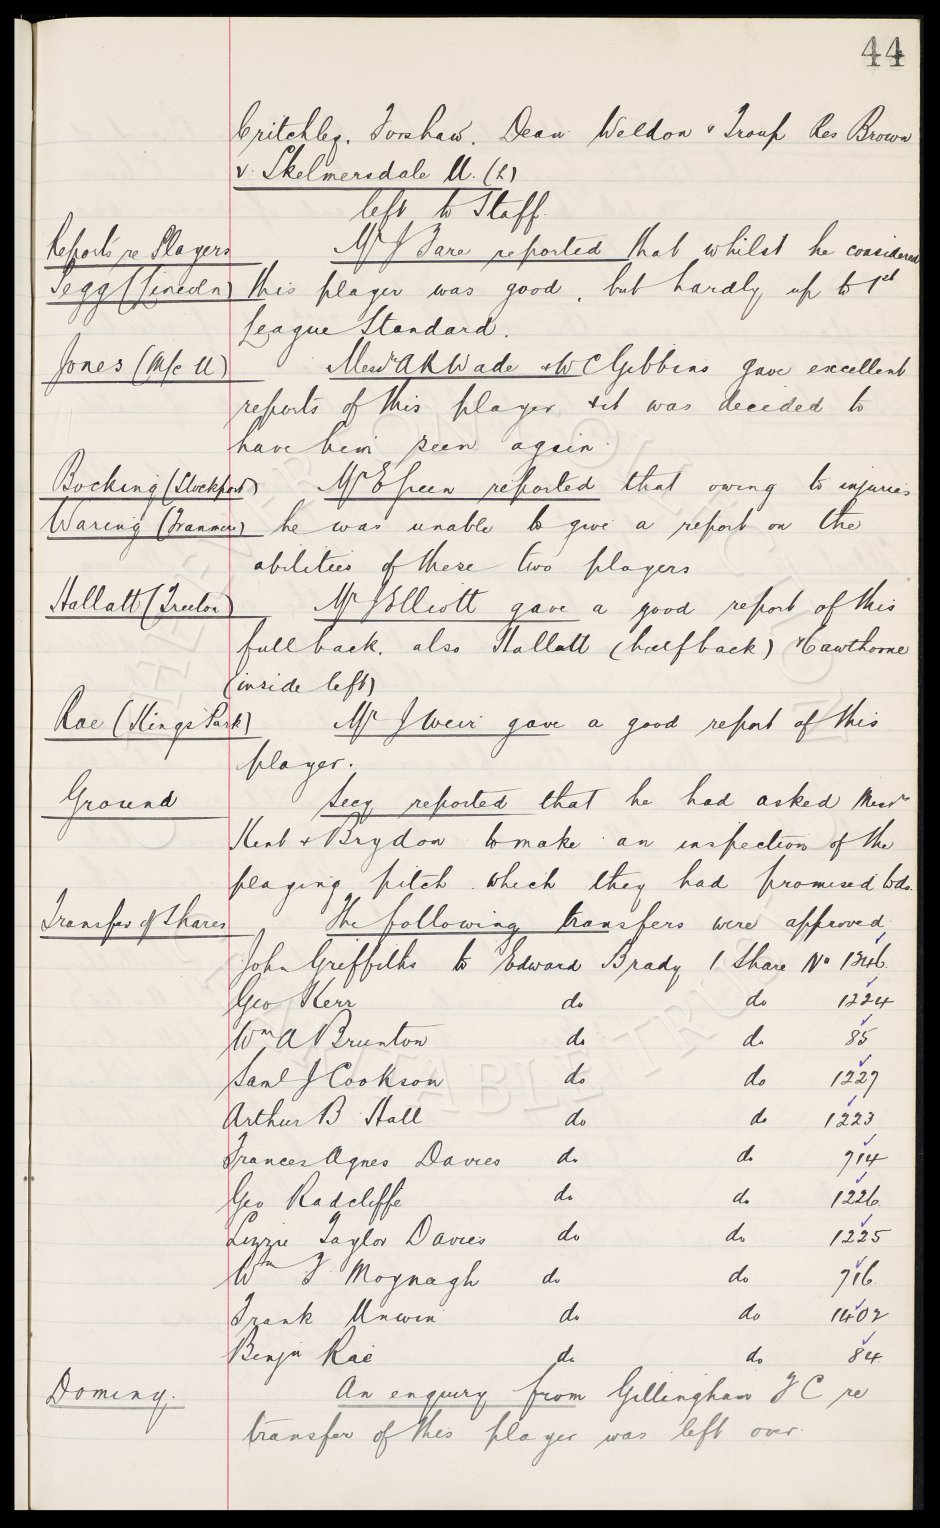 44
Critchley. Forshaw. Dean Weldon & Troup Res Brown
v. Skelmersdale U. (L)
left to Staff.
Reports re Players Mr J Fare reported that whilst he considered
Pegg (Lincoln) this player was good, but hardly up to 1st
League Standard.
Jones (M/c U) Messrs A R Wade & W C Gibbins gave excellent
reports of this player & it was decided to
have him seen again.
Bocking (Stockport) Mr E Green reported that owing to injuries
Waring (Tranmere) he was unable to give a report on the
abilities of these two players
Hallatt (Treeton) Mr J Elliott gave a good report of this
full back. also Hallatt (half back) & Cawthorne
(inside left)
Rae (Kings Park) Mr J Weir gave a good report of this
player.
Ground Secy reported that he had asked Messrs
Kent & Brydon to make an inspection of the
playing pitch which they had promised to do.
Transfer of Shares The following transfers were approved
John Griffiths to Edward Brady 1 Share No 1346.
Geo Kerr do do 1224
Wm A Brunton do do 85
Saml J Cookson do do 1227
Arthur B Hall do do 1223
Frances Agnes Davies do do 714
Geo Radcliffe do do 1226.
Lizzie Taylor Davies do do 1225
Wm F Moynagh do do 716.
Frank Unwin do do 1402
Benjn Rae do do 84
Dominy. An enquiry from Gillingham F C re
transfer of this player was left over.
THE EVERTON COLLECTION
CHARITABLE TRUST